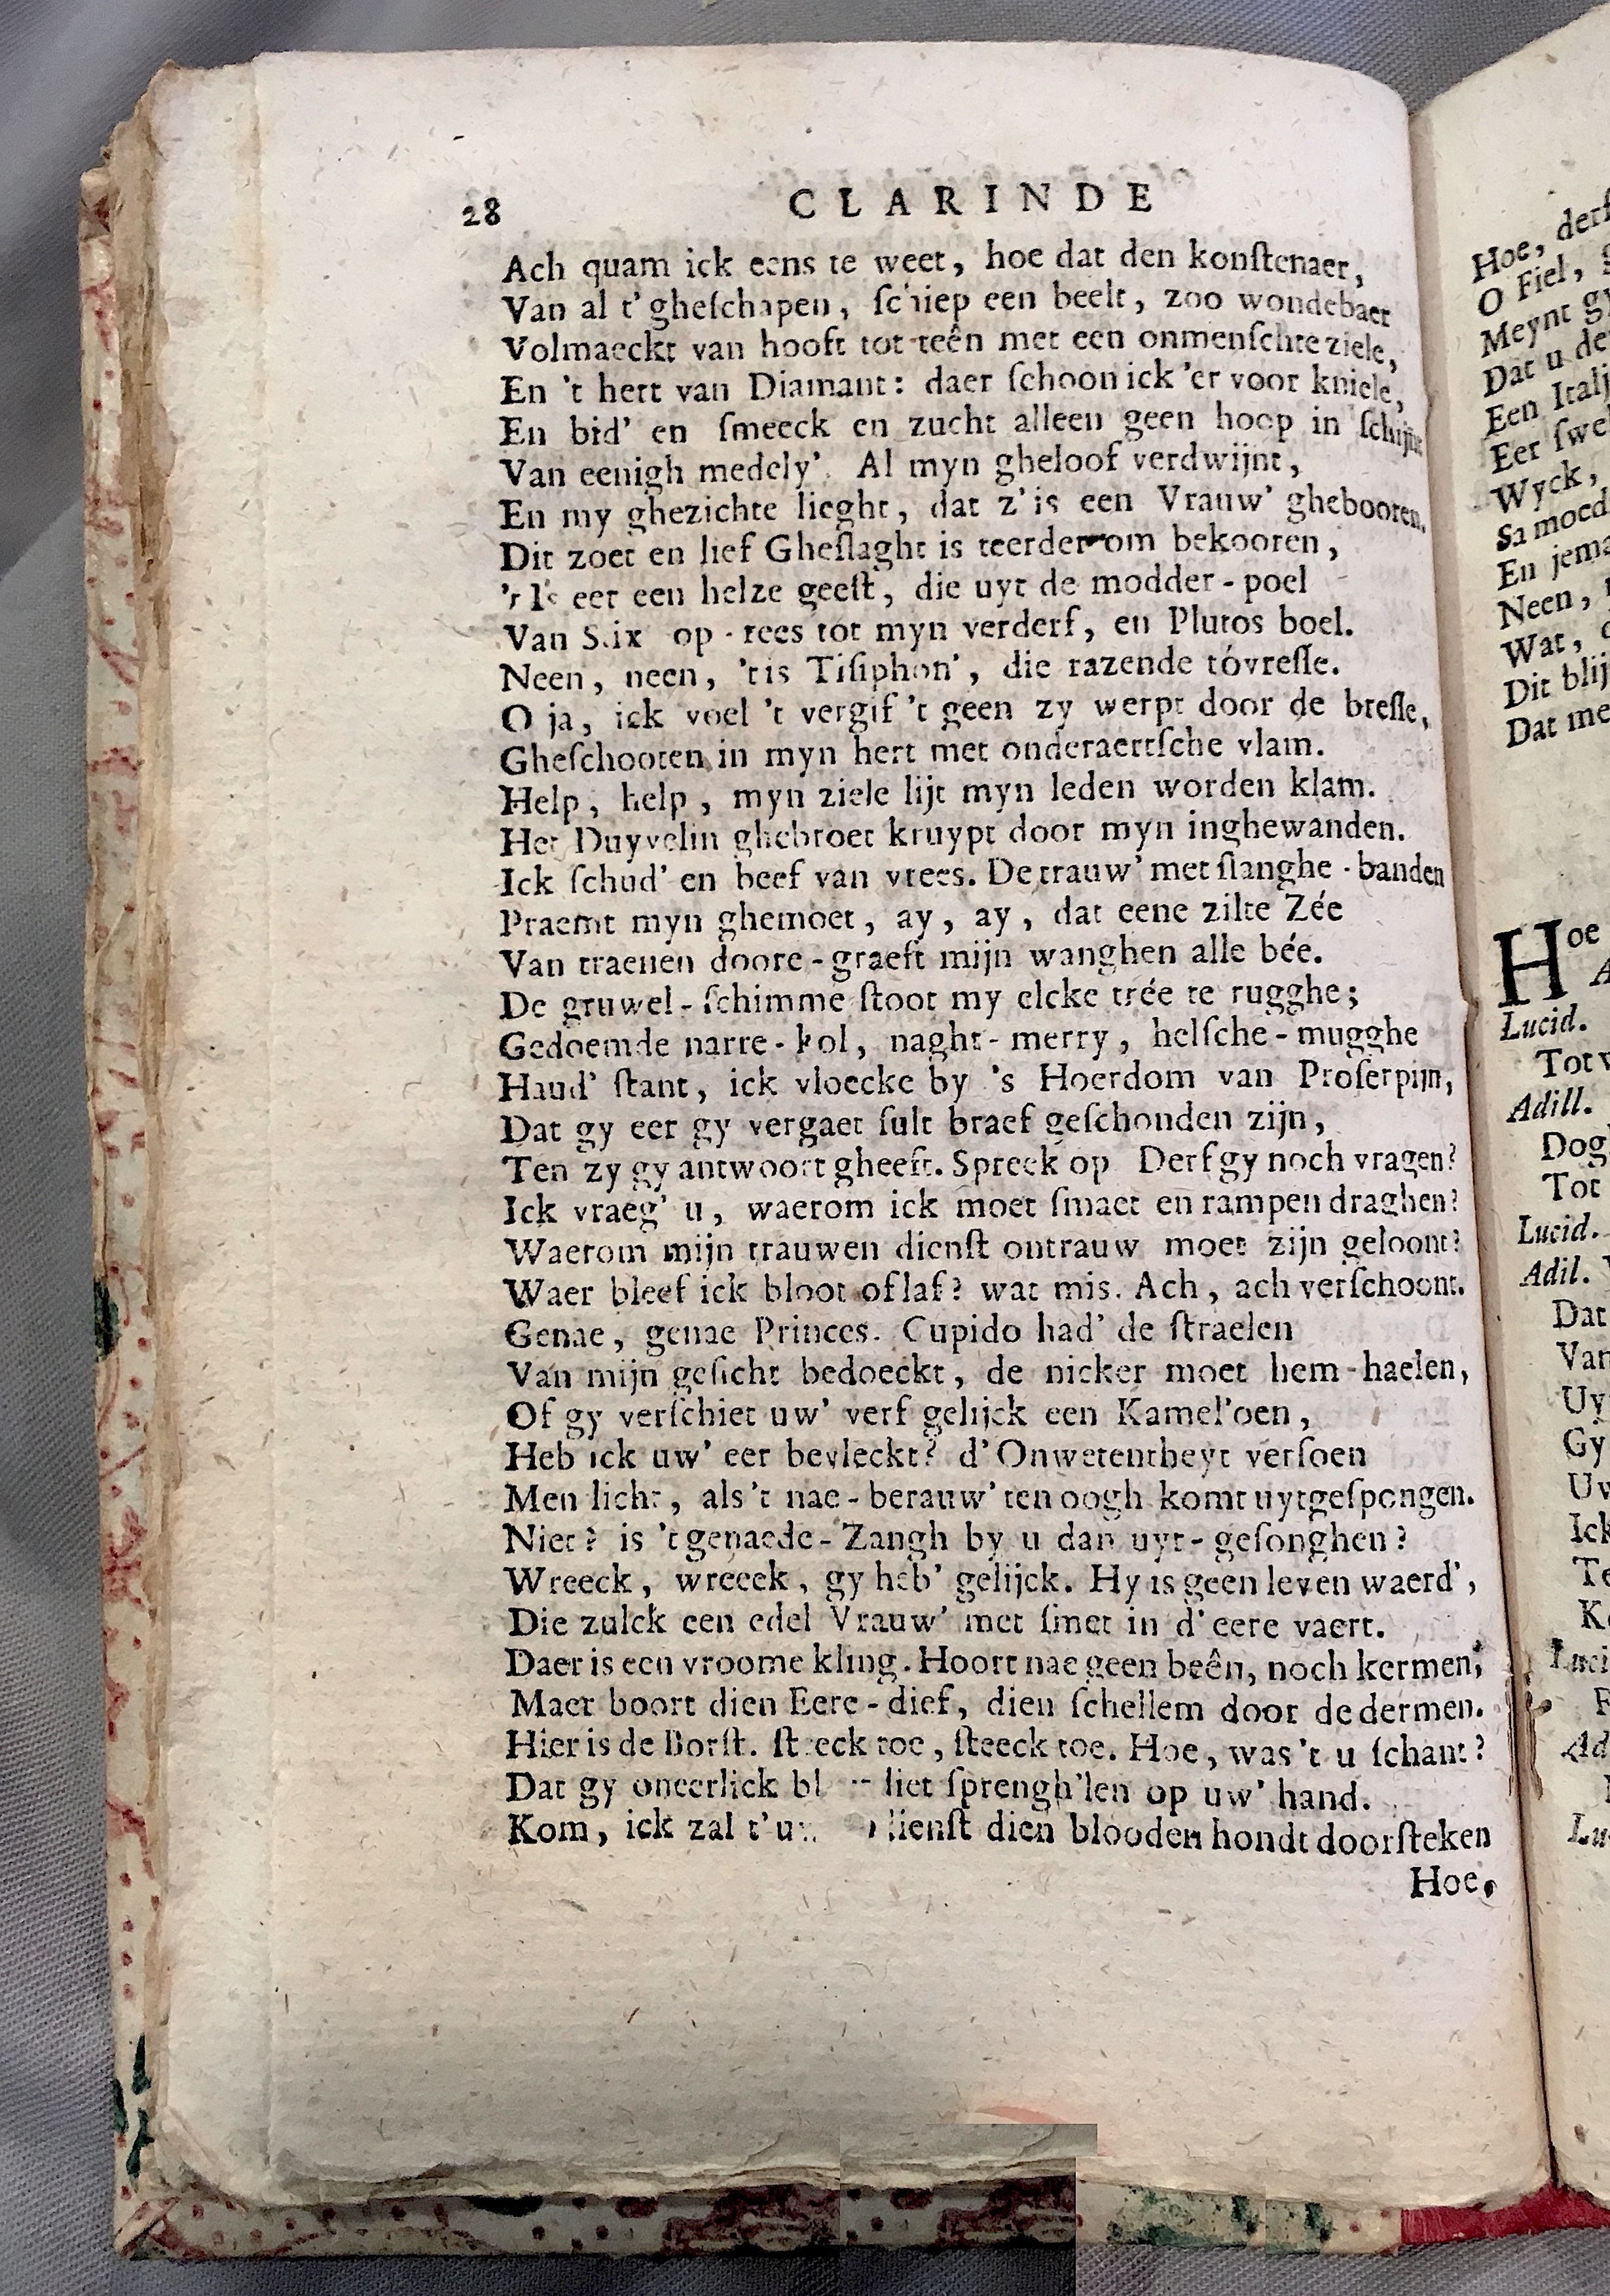 28 CLARINDE
Ach quam ick eens te weet, hoe dat den konſtenaer,
Van al t'gheſchapen, ſchiep een beelt, zoo wondebaer
Volmaeckt van hooft tot teên met een onmenſchte ziele,
En 't hert van Diamant: daer ſchoon ick 'er voor kniele,
En bid' en ſmeeck en zucht alleen geen hoop in ſchijnt
Van eenigh medely'. Al myn gheloof verdwijnt,
En my ghezichte lieght, dat z'is een Vrauw' ghebooren.
Dit zoet en lief Gheſlaght is teerder om bekooren,
't Is eer een helze geeſt, die uyt de modder-poel
Van Stix op-rees tot myn verderf, en Plutos boel.
Neen, neen, 'tis Tiſiphon', die razende tóvreſſe.
O ja, ick voel 't vergif 't geen zy werpt door de breſſe,
Gheſchooten in myn hert met onderaertſche vlam.
Help, help, myn ziele lijt myn leden worden klam.
Het Duyvelin ghebroet kruypt door myn inghewanden.
Ick ſchud' en beef van vrees. De trauw' met ſlanghe-banden
Praemt myn ghemoet, ay, ay, dat eene zilte Zée
Van traenen doore-graeft mijn wanghen alle bée.
De gruwel-ſchimme ſtoot my elcke trée te rugghe;
Gedoemde narre-kol, naght-merry, helſche-mugghe
Haud' ſtant, ick vloecke by 's Hoerdom van Proſerpijn,
Dat gy eer gy vergaet ſult braef geſchonden zijn,
Ten zy gy antwoort gheeft. Spreek op Derf gy noch vragen?
Ick vraeg' u, waerom ick moet ſmaet en rampen draghen?
Waerom mijn trauwen dienſt ontrauw moet zijn geloont?
Waer bleef ick bloot of laf? wat mis. Ach, ach verſchoont.
Genae, genae Princes. Cupido had' de ſtraelen
Van mijn geſicht bedoeckt, de nicker moet hem-haelen,
Of gy verſchiet uw' verf gelijck een Kamel'oen,
Heb ick uw' eer bevleckt? d'Onwetentheyt verſoen
Men licht, als't nae-berauw' ten oogh komt uytgeſpongen.
Niet? is 't genaede-Zangh by u dan uyt-geſonghen?
Wreeck, wreeck, gy heb' gelijck. Hy is geen leven waerd',
Die zulck een edel Vrauw' met ſmet in d'eere vaert.
Daer is een vroome kling. Hoort nae geen beên, noch kermen;
Maer boort dien Eere-dief, dien ſchellem door de dermen.
Hier is de Borſt. ſteeck toe, ſteeck toe. Hoe, was't u ſchant?
Dat gy oneerlick liet ſprengh'len op uw' hand.
Kom, ick zal dienſt dien blooden hondt doorſteken
Hoe,
Hoe,
O Fiel,
Meynt
Dat u
Een
Eer
Wyck,
Sa moed
En
Neen,
Wat,
Dit
Dat
Hoe
Lucid.
Tot
Adill.
Dog
Tot
Lucid.
Adil.
Dat
Van
Uy
Gy